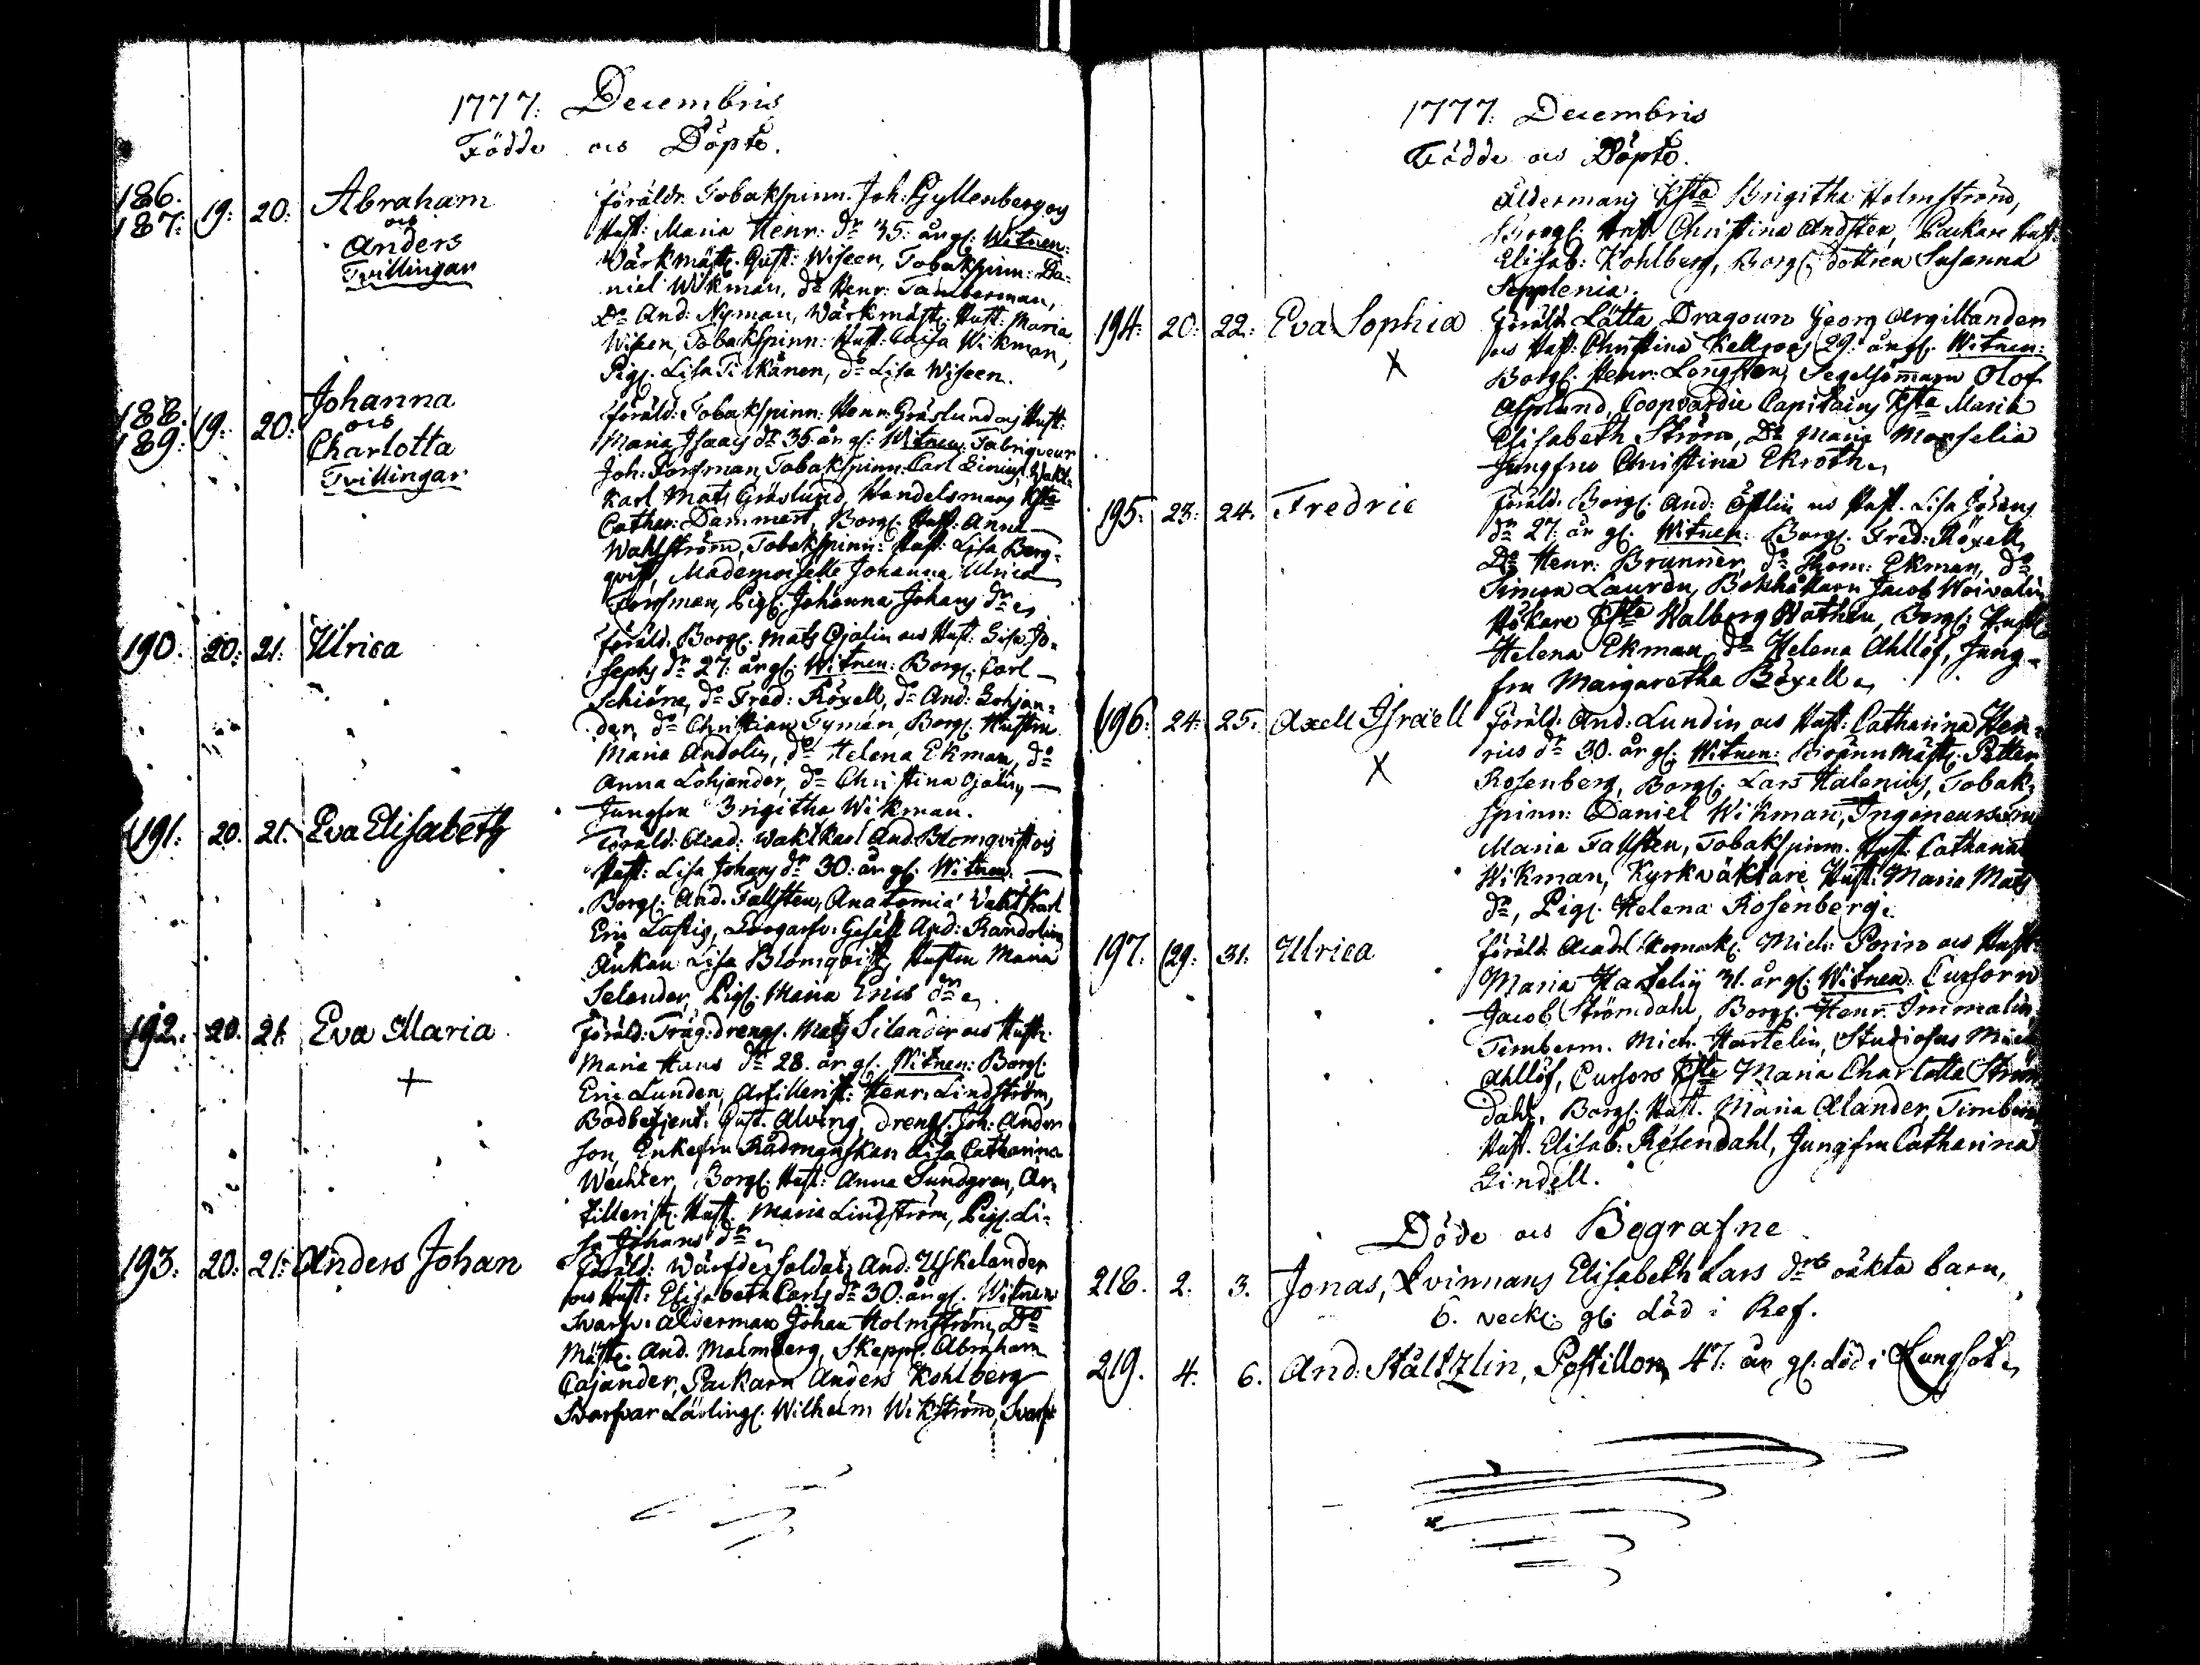 1777. Decembris
Födde och Döpte.
186. 187. 19. 20. Abraham och Anders Tvillingar
Föräldr. Tobakspinn. Joh: Gyllenberg och
Hust: Maria Henr: dr 35: år gl: Witnen:
Värkmäst. Gust: Wiseen, Tobakspinn: Da-
niel Wikman, do Henr: Tamberman,
Do And: Nyman, Wärkmäst: Hust: Maria
Wiseen, Tobakspinn: Hust: Caisa Wikman,
Pig. Lisa Tilkänen, do Lisa Wiseen.
188. 189. 19. 20. Johanna och Charlotta Tvillingar
Föräld: Tobakspinn: Henr: Gräslund och Hust:
Maria Isaacs dr 35 år gl: Witnen: Fabriqueur
Joh: Forssman, Tobakspinn: Carl Linius, Wakt-
karl Mats Gräslund, Handelsmans Hsta
Cathar: Dammert, Borg: Hust: Anna
Wahlström, Tobakspinn: Hust: Lisa Berg-
qvist, Mademoiselle Johanna Ulrica
Forssman, Pig: Johanna Johans dr
190. 20. 21. Ulrica
Föräld. Borg: Mats Ojalin och Hust. Lisa Jo-
sephs dr 27: år gl: Witnen: Borg: Carl
Schiöne, do Fred: Röxell, do And: Lohjan-
der, do Christian Tymen, Borg: Hustru
Maria Andolin, do Helena Ekman, do
Anna Lohjander, do Christina Ojalin,
Jungfru Brigitha Wikman.
191. 20. 21. Eva Elisabeth
Föräld: Acad: Waktkarl And: Blomqvist och
Hust: Lisa Johans dr 30: år gl: Witnen.
Borg: And. Fallsten, Anatomiæ Vaktkarl
Eric Lustig, Gesäll And: Randolin
Änkan Lisa Blomqvist, Hustru Maria
Selander, Pig: Maria Erics dr
192. 20. 21. Eva Maria
Föräld: Träg:dreng. Mats Silander och Hustr:
Maria Hans dr 28. år gl: Witnen: Borg:
Eric Lunden, Artillerist: Henr: Lindström,
Bodbetjent: Gust. Alving, Dreng. Joh: Ander
son, Enkefru Rådmanskan Lisa Catharina
Wechter, Borg: Hust: Anna Sundgren, Ar-
tillerist. Hust. Maria Lindström, Pig. Li-
sa Johans dr
193. 20. 21. Anders Johan
Föräld: Wärfde soldat And: Uskelander
och Hust: Elisabeth Carls dr 30: år gl. Witnen
Svarfv: Alderman Johan Holmström, Do
Mäst: And. Malmberg, Skepp: Abraham
Cajander, Packarn Anders Kohlberg
Lärling. Wilhelm Wikström, Svarf:
1777. Decembris
Födde och Döpte.
Åldermans Hsta Brigitha Holmström,
Borg: Hust Christina Andsten, Packare Hust:
Elisab: Kohlberg, Borg: Dottren Susanna
194. 20. 22. Eva Sophia
Föräld: Lätta Dragoun Georg Argillander
och Hust: Christina 29: år gl. Witnen:
Borg: Henr: Longsten, Segelsömmarn Olof
Asplund, Coopvardie Capitains Hsta Maria
Elisabeth Ström, Do Maria Monselia
Jungfru Christina Ekroth
195. 23. 24. Fredric
Föräld. Borg: And: Östlin och Hust. Lisa Jörens
dr 27. år gl: Witnen: Borg: Fred: Röxell
Do Henr: Brunner, do Thom: Ekman, do
Simon Lauren, Bokhållarn Jacob Woivalin
Hökare Hsta Walborg Wathen, Borg: Hust:
Helena Ekman, do Helena Ahllöf, Jung-
fru Margaretha Röxell
196. 24. 25. Axell Israell
Föräld: And: Lundin och Hust: Catharina Hen-
rics dr 30. år gl: Witnen: Brännmäst: Petter
Rosenberg, Borg: Lars Halenius, Tobak-
spinn: Daniel Wikman, Ingeneurs Fru
Maria Fallsten, Tobakspinn. Hust Catharina
Wikman, Kyrkväktare Hust: Maria Mats
dr, Pig: Helena Rosenberg.
197. 29. 31. Ulrica
Föräld: Acad: Komak: Mich: Porin och Hust:
Maria Hartelin 31. år gl: Witnen: Cursorn
Jacob Strömdahl, Borg: Henr: Immalin,
Timberm. Mich: Hartelin, Studiosus Mich
Ahllöf, Cursors Hsta Maria Charlotta Ström
dahl, Borg: Hust. Maria Alander, Timberm
Hust. Elisab: Rosendahl, Jungfru Catharina
Lindell.
Döde och Begrafne
218. 2. 3. Jonas, Qvinnans Elisabeth Lars drs oäkta barn,
6. veck: gl: död i Ref.
219. 4. 6. And: Ståltzlin, Postillon, 47. år gl: död i Lungsot